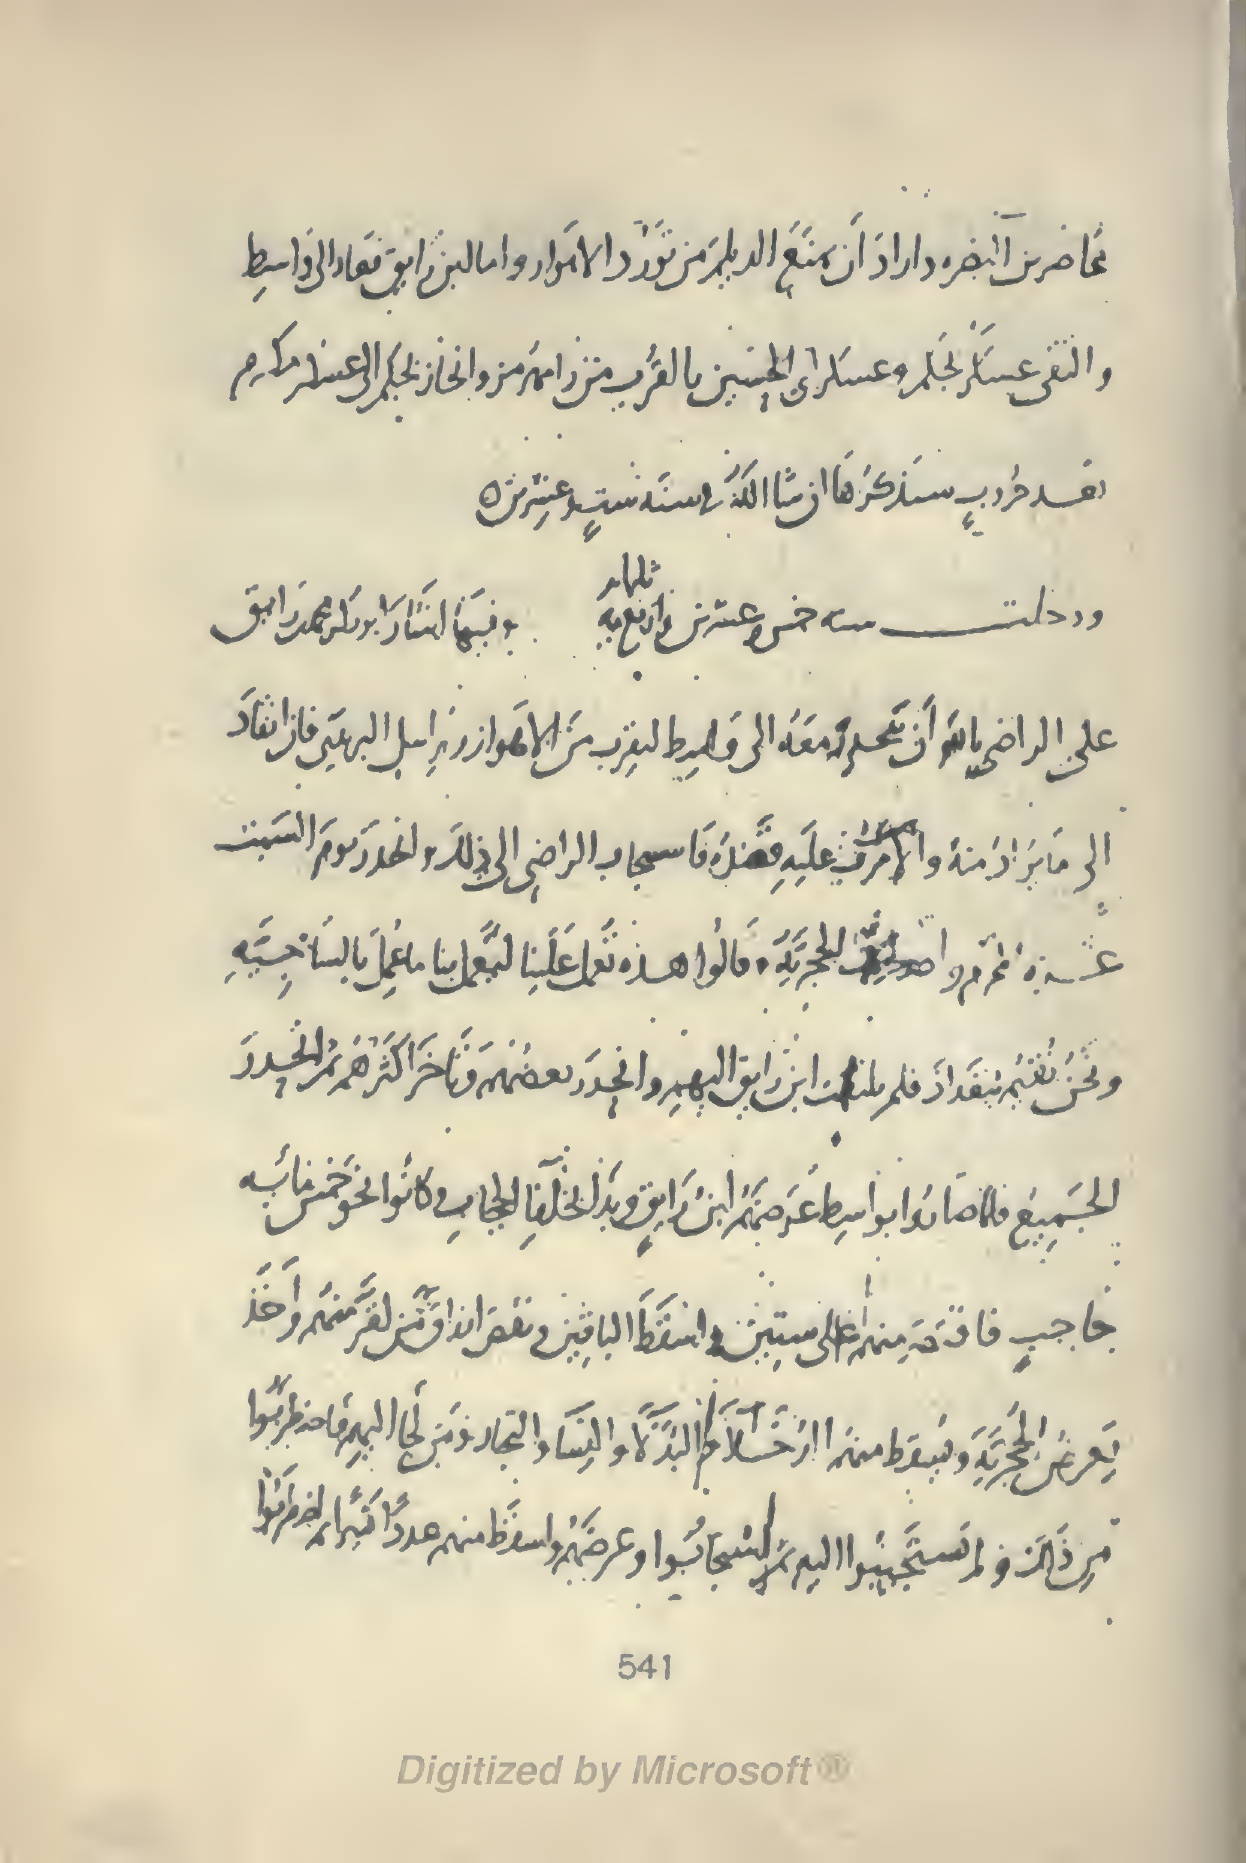 محاصرين البصره واراد أن يمنع الديلم من تورد الاهواز واما ابن رايق فعاد الى واسط
والتقى عسكر بجكم وعسكر ابي الحسين بالقرب من رامهرمز وانحاز بجكم الى عسكر مكرم
بعد حروب سنذكرها ان شا الله في سنه ست وعشرين ه
ودخلت سنه خمس وعشرين وثلثمايه وفيها اشار ابو بكر محمد بن رايق
على الراضي بالله أن ينحدر معه الى واسط ليقرب من الاهواز ويراسل البريدي فان انقاد
الى ما يراد منه والا قرب عليه قصده فاستجاب الراضي الى ذلك وانحدر يوم السبت
غرة المحرم واضطربت الحجرية وقالوا هذه تعمل علينا ليعمل بنا ما عمل بالساجيه
ونحن نقيم ببغداد فلم يلتفت ابن رايق اليهم وانحدر بعضهم وتأخر اكثرهم ثم انحدر
الجميع فلما صاروا بواسط عرضهم ابن رايق وبدأ بخلفا الحجاب وكانوا نحو خمس مائه
حاجب فاقتصر منهم على ستين واسقط الباقين ونقص ارزاق من اقر منهم وأخذ
يعرض الحجرية ويسقط منهم الدخلا والبدلا والنسا والتجار ومن لجا اليهم فاضطربوا
من ذلك ولم يستجيبوا اليه ثم استجابوا وعرضهم واسقط منهم عددا كثيرا ثم اضطربوا
541
Digitized by Microsoft®